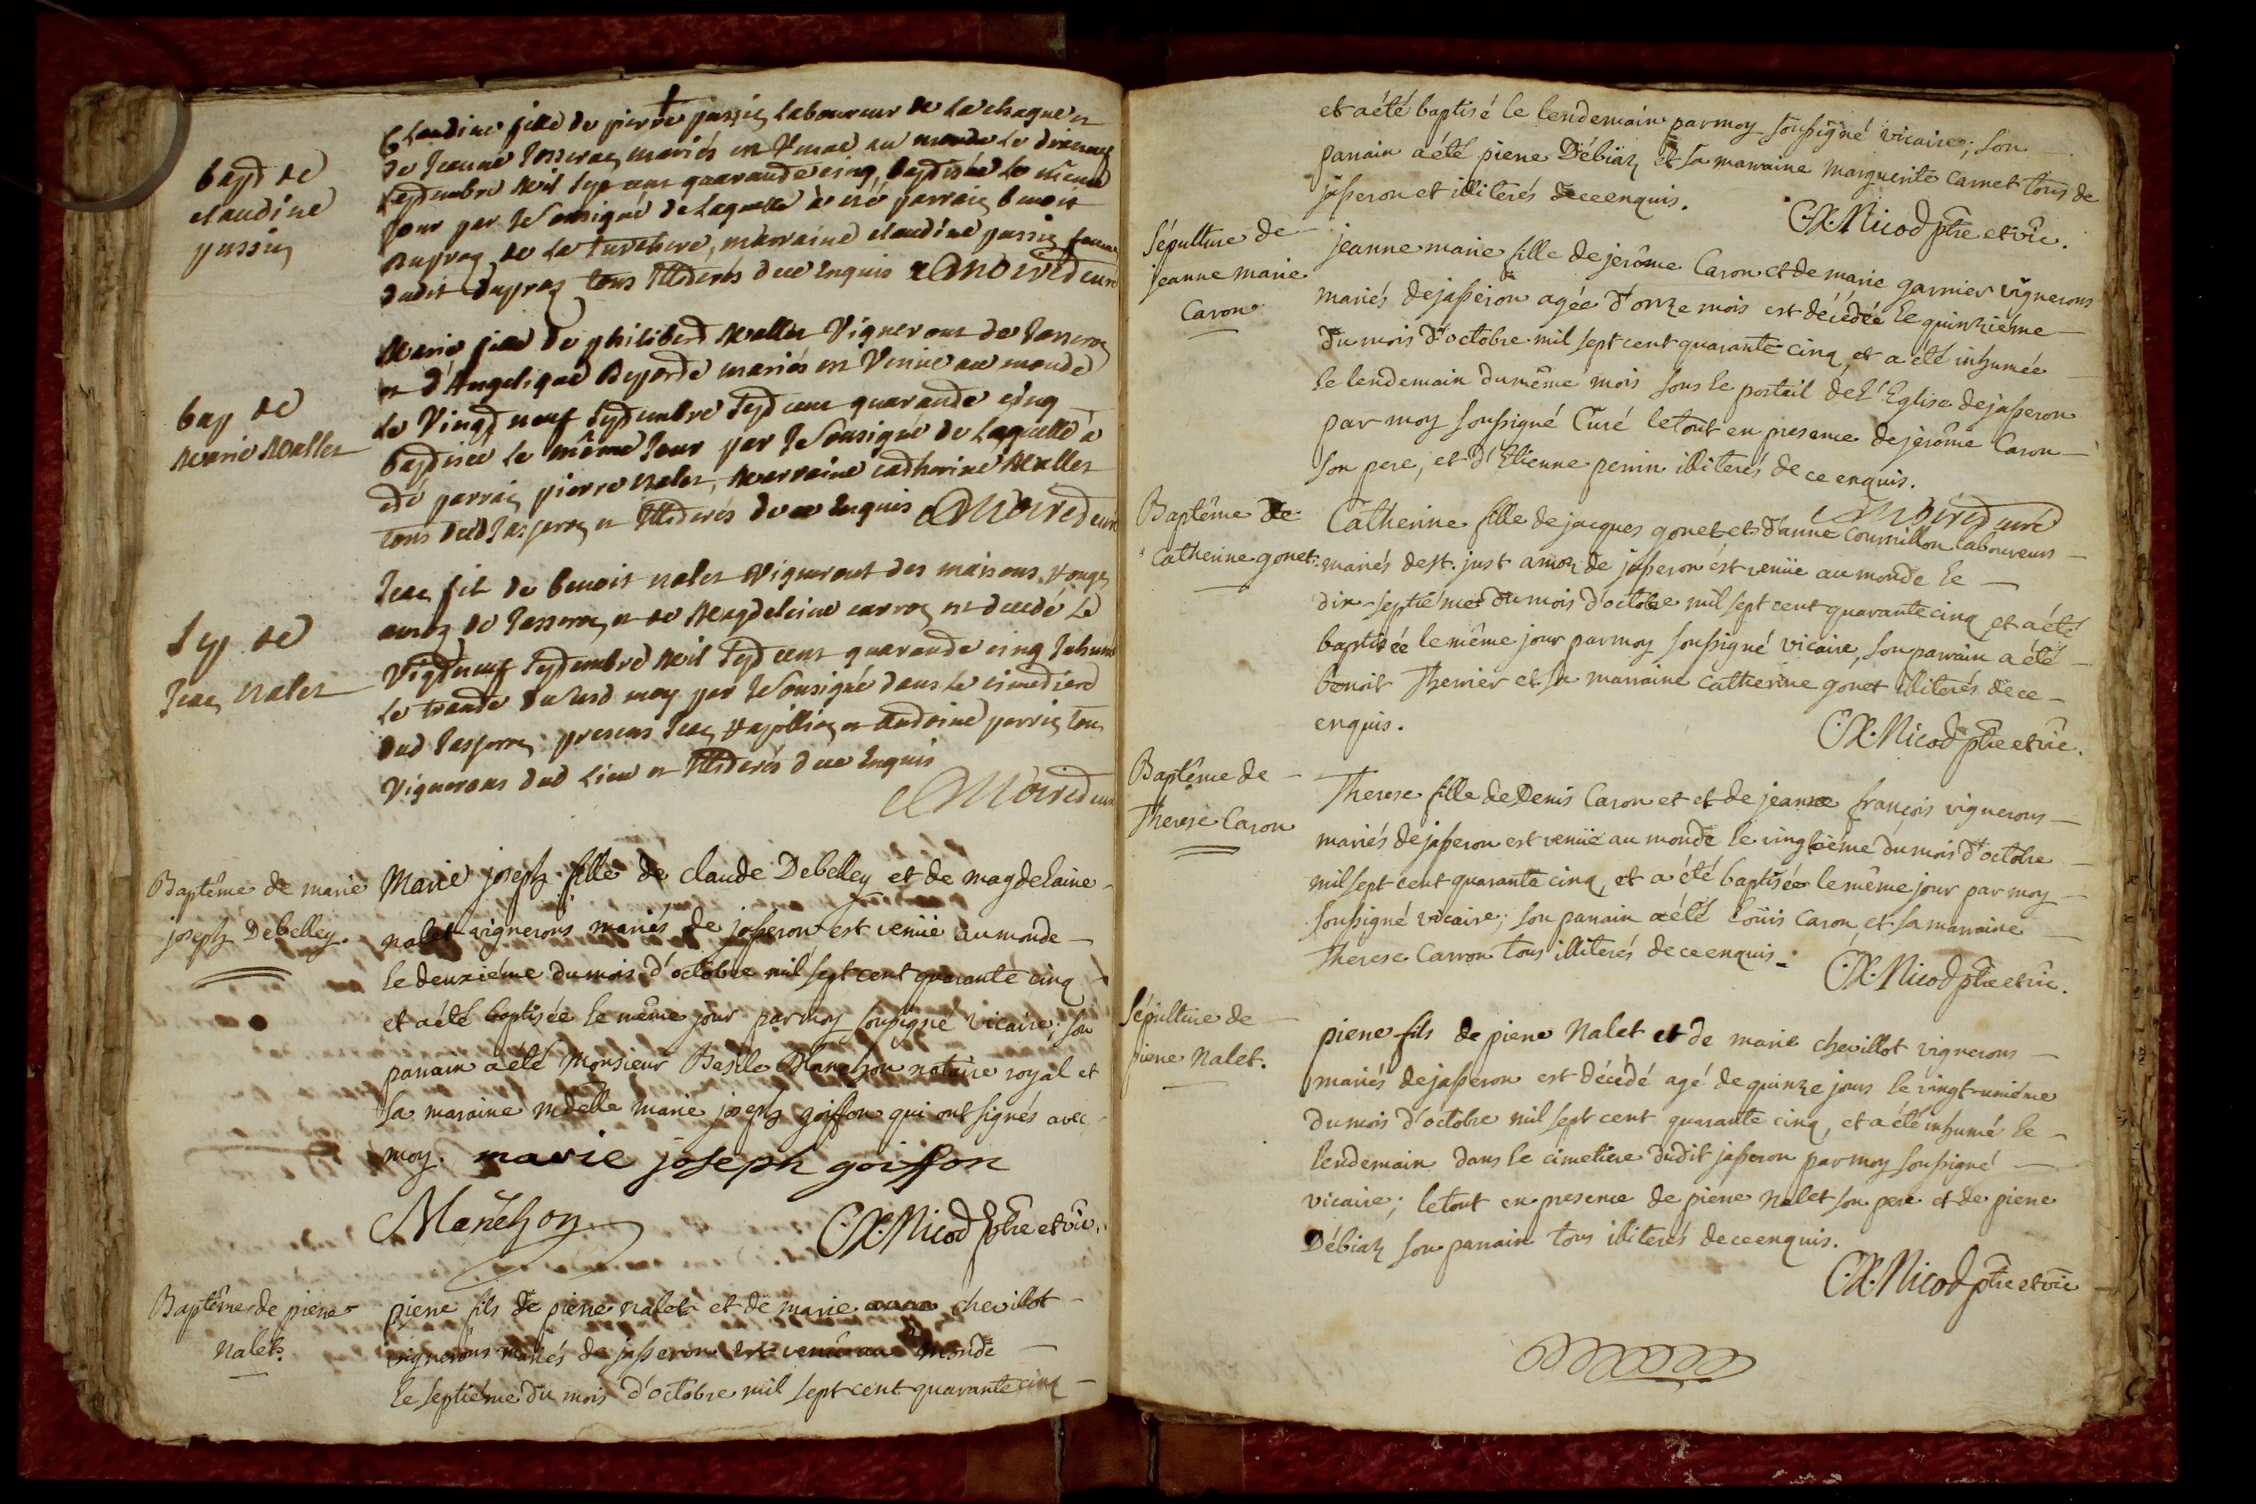 bapt de
claudine
passin
Claudine fille de pierre passin laboureur de la chagne et
de Jeanne Josserand mariés est venue au monde le
septembre mil sept cent quarante cinq, baptisée le même
jour par le sousigné de laquelle à été parrain benoit
dupraz de la, marraine claudine passin femme
dudit dupraz tous illiterés de ce enquis Moiret curé
bap de
marie mallet
marie fille de philiberd mallet vigneront de Jasseron
et d'Angelique mariés est venüe au monde
le vingt neuf septembre sept cent quarante cinq
baptisée le même jour par le sousigné de laquelle à
été parrain pierre nalet, marraine catherine mallet
tous dud Jasseron et illiterés de ce enquis Moiret curé
sep de
Jean nalet
Jean fil de benoit nalet vigneront des maisons
de Jasseron et de magdeleine carron est decedé le
vigtneuf septembre mil sept cent quarante cinq Inhumé
le trante dusud moy par le sousigné dans le cimetiere
dud Jasseron presens Jean et andoine perrin tous
vignerons dud lieu et illiterés de ce enquis
Moiret curé
Baptême de marie
joseph Debelley.
Marie joseph fille de claude Debelley et de magdelaine
nalet vignerons mariés de jasseron est venüe au monde
le deuxiéme du mois d'octobre mil sept cent quarante cinq
et a été baptisée le même jour par moy soussigné vicaire; son
parrain a été Monsieur Basile Manehon notaire royal et
la maraine mdelle marie joseph goiffon qui ont signés avec
moy. marie joseph goiffon
Manéhon
C.X. Nicod ptre et vic.
Baptême de pierre
nalet.
pierre fils de pierre nalet et de marie chevillot
vignerons mariés de jasseron est venu au monde
le septiéme du mois d'octobre mil sept cent quarante cinq
et a été baptisé le lendemain par moy soussigné vicaire; son
parrain a été pierre Débiaz et sa marraine marguerite carnet tous de
jasseron et illiterés de ce enquis.
C.X. Nicod ptre et vic.
Sépulture de
jeanne marie
Caron
jeanne marie fille de jerôme Caron et de marie garnier vignerons
mariés de jasseron agée d'onze mois est décédée le quinziéme
du mois d'octobre mil sept cent quarante cinq, et a été inhumée
le lendemain du même mois sous le portail de l'Eglise de jasseron
par moy soussigné Curé le tout en presence de jerôme Caron
son pere, et d'Etienne perrin illiterés de ce enquis.
Moiret curé
Baptême de
Catherine gonet.
Catherine fille de jacques gonet et d'anne Cournillon laboureurs
mariés de st. just amoz de jasseron est venüe au monde le
dix-septiéme du mois d'octobre mil sept cent quarante cinq et a été
baptisée le même jour par moy soussigné vicaire, son parrain a été
benoit Therrier et sa marraine catherine gonet illiterés de ce
enquis.
C.X. Nicod ptre et vic.
Baptême de
Therese Caron
Therese fille de Denis Caron et et de jeanne françois vignerons
mariés de jasseron est venüe au monde le vingtiéme du mois d'octobre
mil sept cent quarante cinq, et a été baptisée le même jour par moy
soussigné vicaire; son parrain a été Loüis caron, et sa marraine
Therese Carron tous illiterés de ce enquis.
C.X. Nicod ptre et vic.
Sépulture de
pierre Nalet.
pierre fils de pierre Nalet et de marie chevillot vignerons
mariés de jasseron est décédé agé de quinze jours le vingt-uniéme
du mois d'octobre mil sept cent quarante cinq, et a été inhumé le
lendemain dans le cimetiere dudit jasseron par moy soussigné
vicaire; le tout en presence de pierre Nalet son pere et de pierre
Débiaz son parrain tous illiterés de ce enquis.
C.X. Nicod ptre et vic